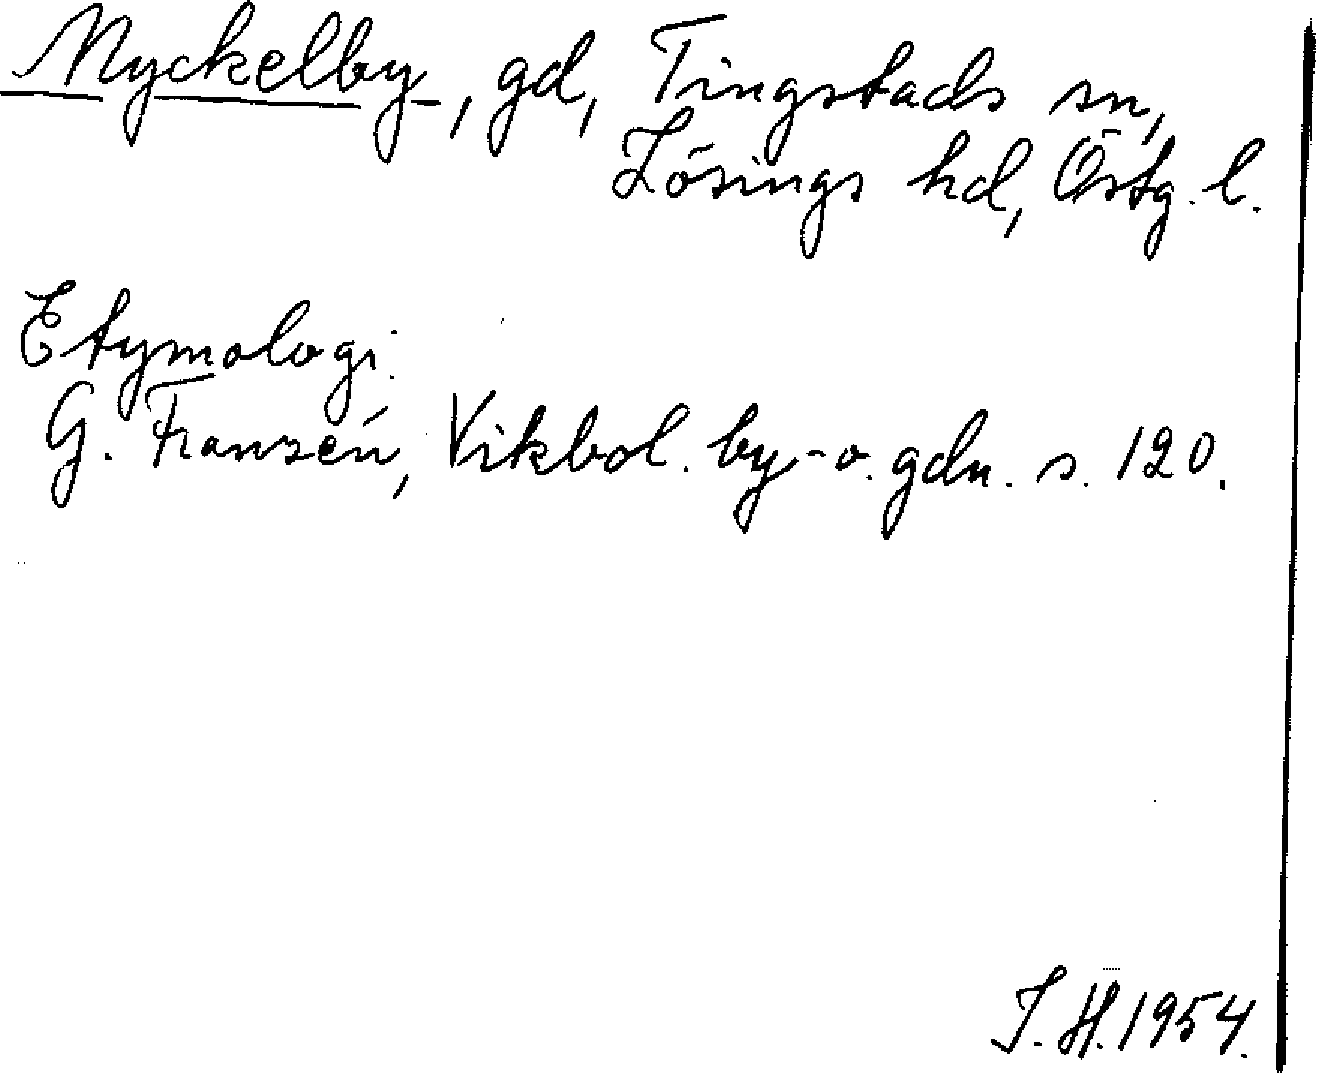 Nyckelby, gd, Tingstads sn,
Lösings hd, Östg. l.
Etymologi.
G. Franzén, Vikbol. by- o. gdn. s. 120.
I. H. 1954.